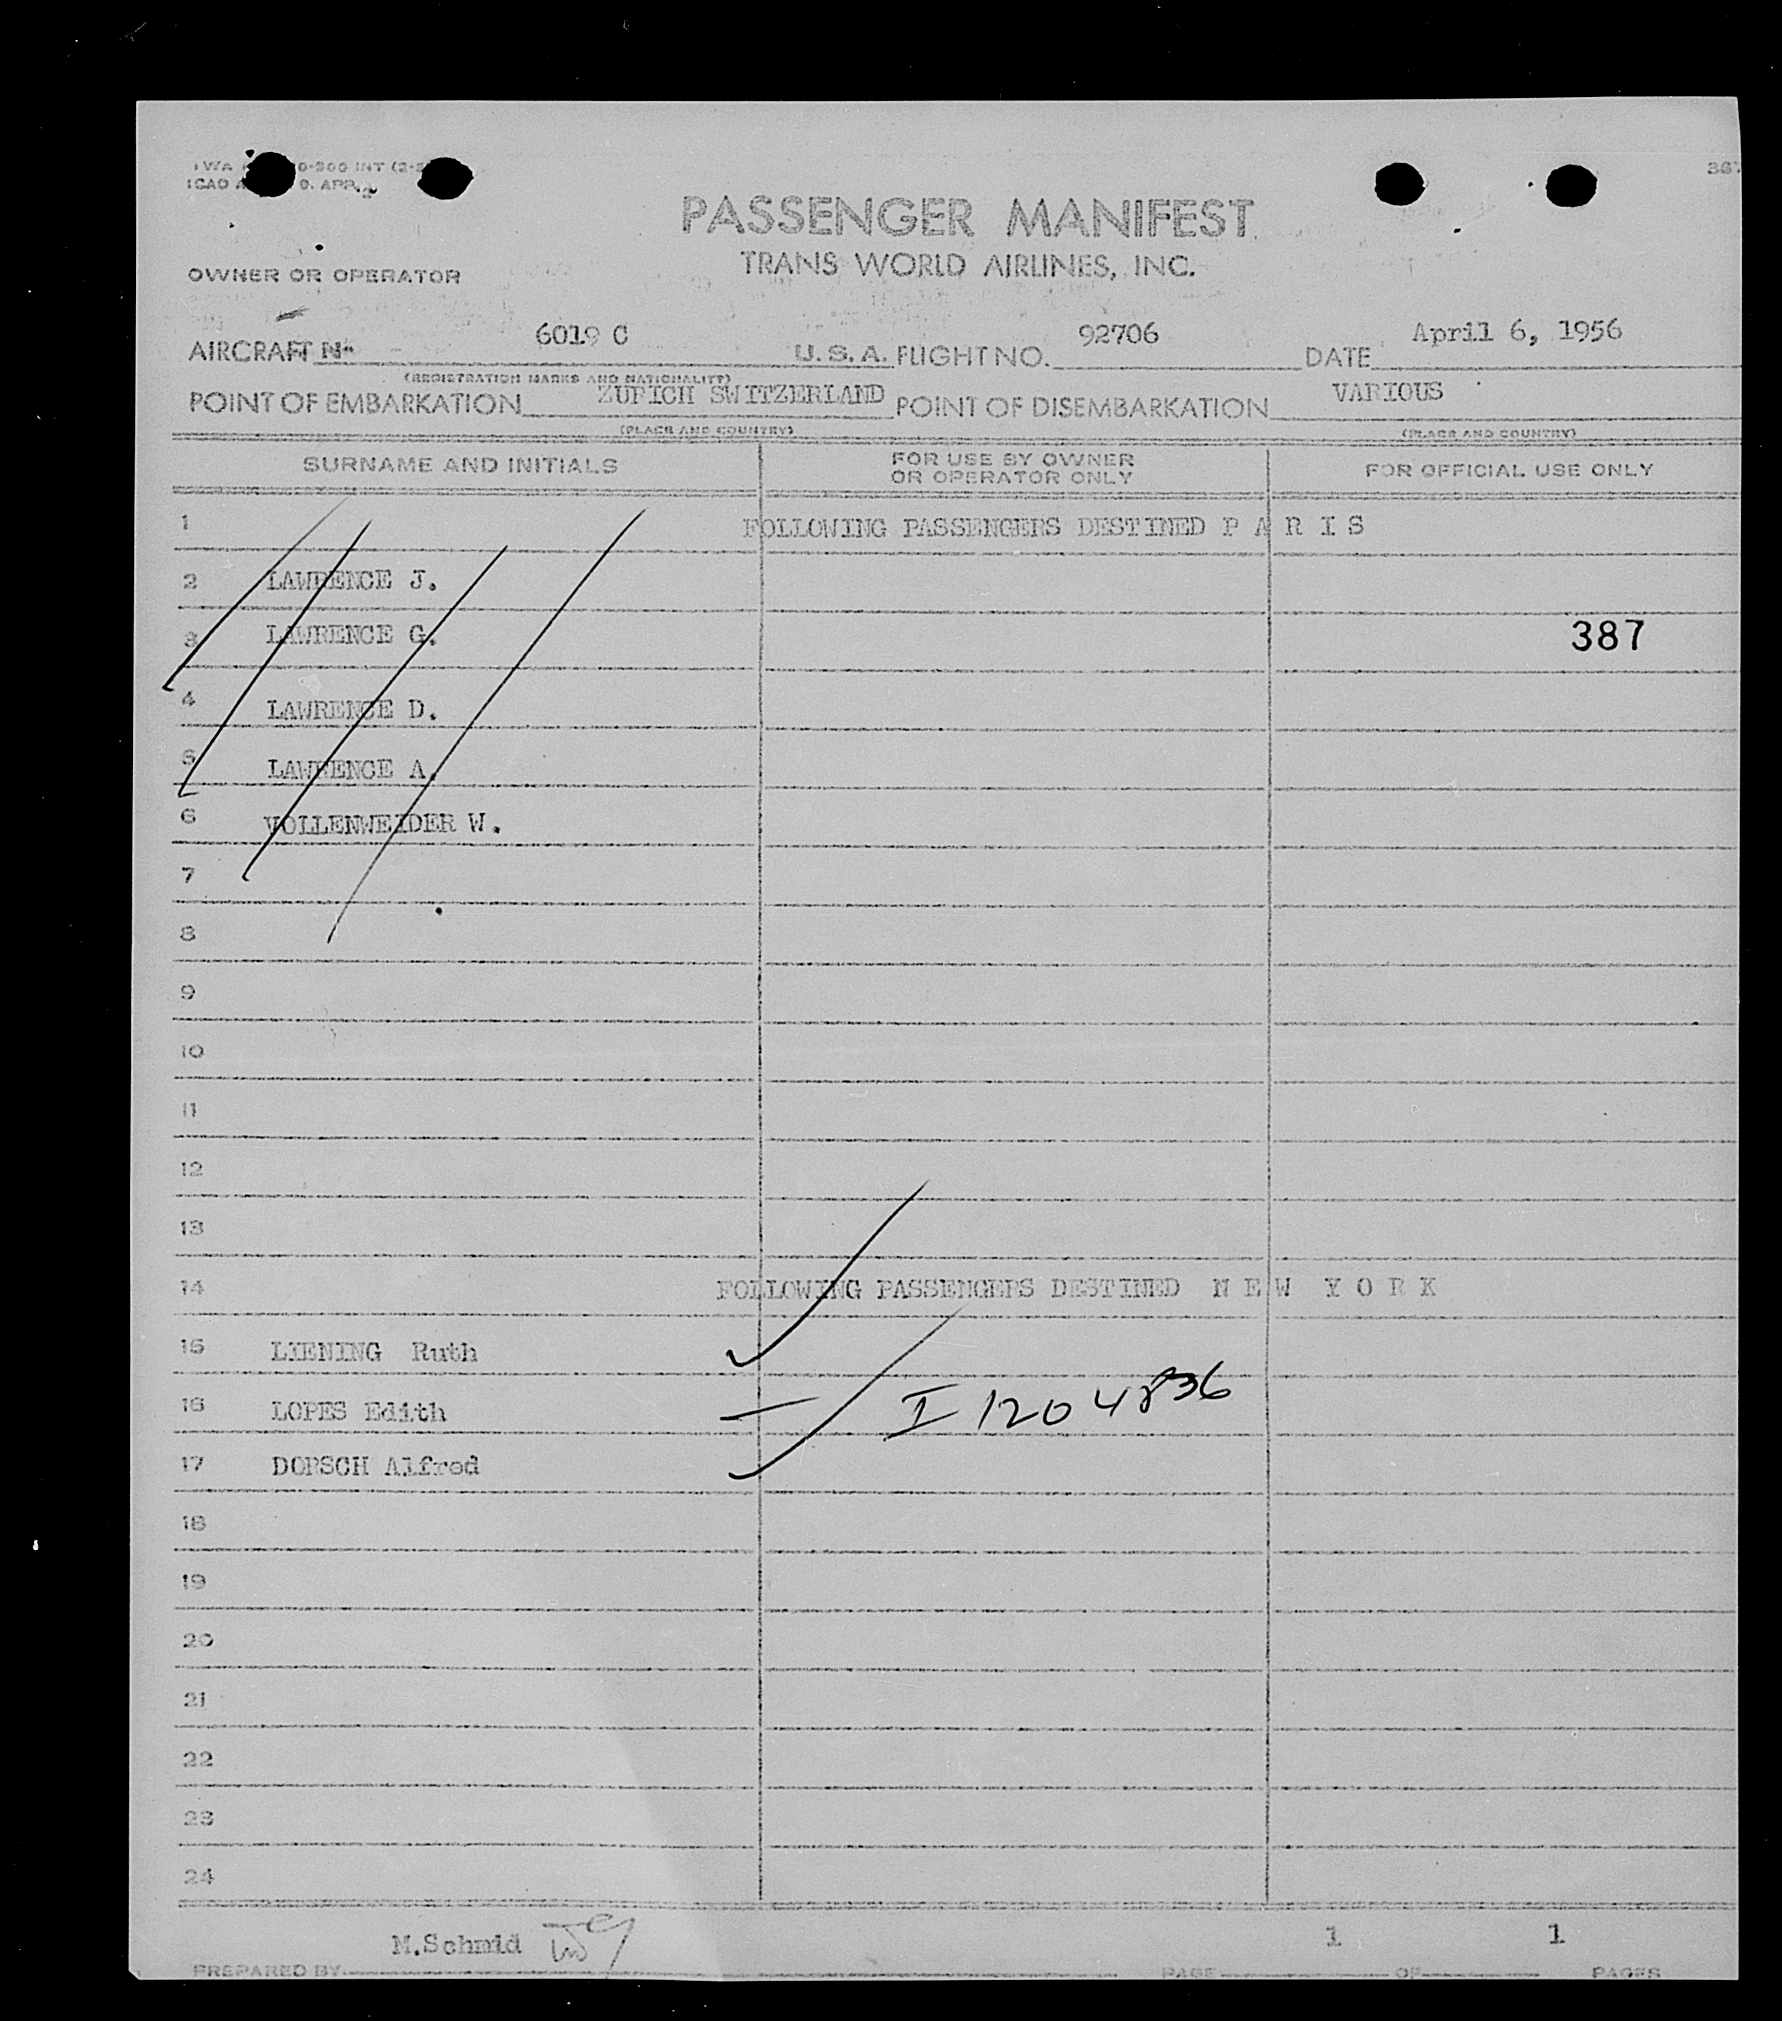 PASSENGER MANIFEST
TRANS WORLD AIRLINES, INC.
OWNER OR OPERATOR
AIRCRAFT Nº 6019 C U. S. A. FLIGHT NO. 92706 DATE April 6, 1956
(REGISTRATION MARKS AND NATIONALITY)
POINT OF EMBARKATION ZURICH SWITZERLAND POINT OF DISEMBARKATION VARIOUS
(PLACE AND COUNTRY) (PLACE AND COUNTRY)
SURNAME AND INITIALS FOR USE BY OWNER OR OPERATOR ONLY FOR OFFICIAL USE ONLY
1 FOLLOWING PASSENGERS DESTINED P A R I S
2 LAWRENCE J.
3 LAWRENCE G. 387
4 LAWRENCE D.
5 LAWRENCE A.
6 VOLLENWEIDER W.
7
8
9
10
11
12
13
14 FOLLOWING PASSENGERS DESTINED N E W Y O R K
15 LIENING Ruth
16 LOPES Edith I 1204836
17 DORSCH Alfred
18
19
20
21
22
23
24
M.Schmid 1 1
PREPARED BY PAGE OF PAGES